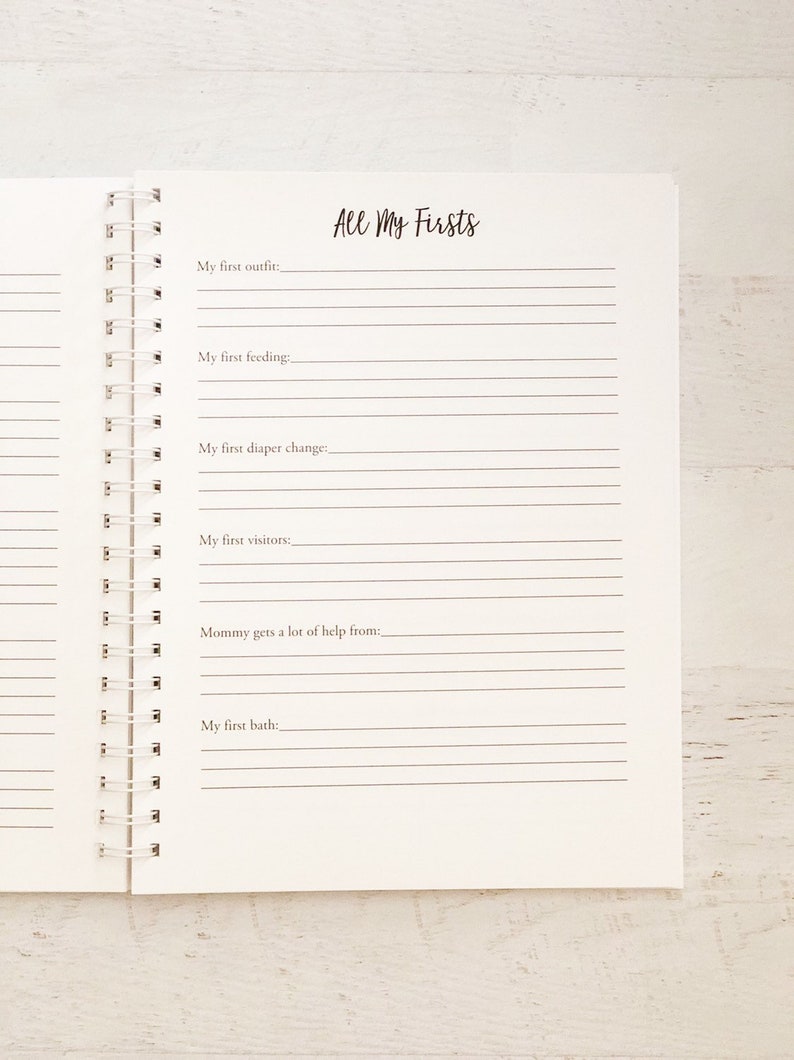 All My Firsts
My first outfit:
My first feeding:
My first diaper change:
My first visitors:
Mommy gets a lot of help from:
My first bath: